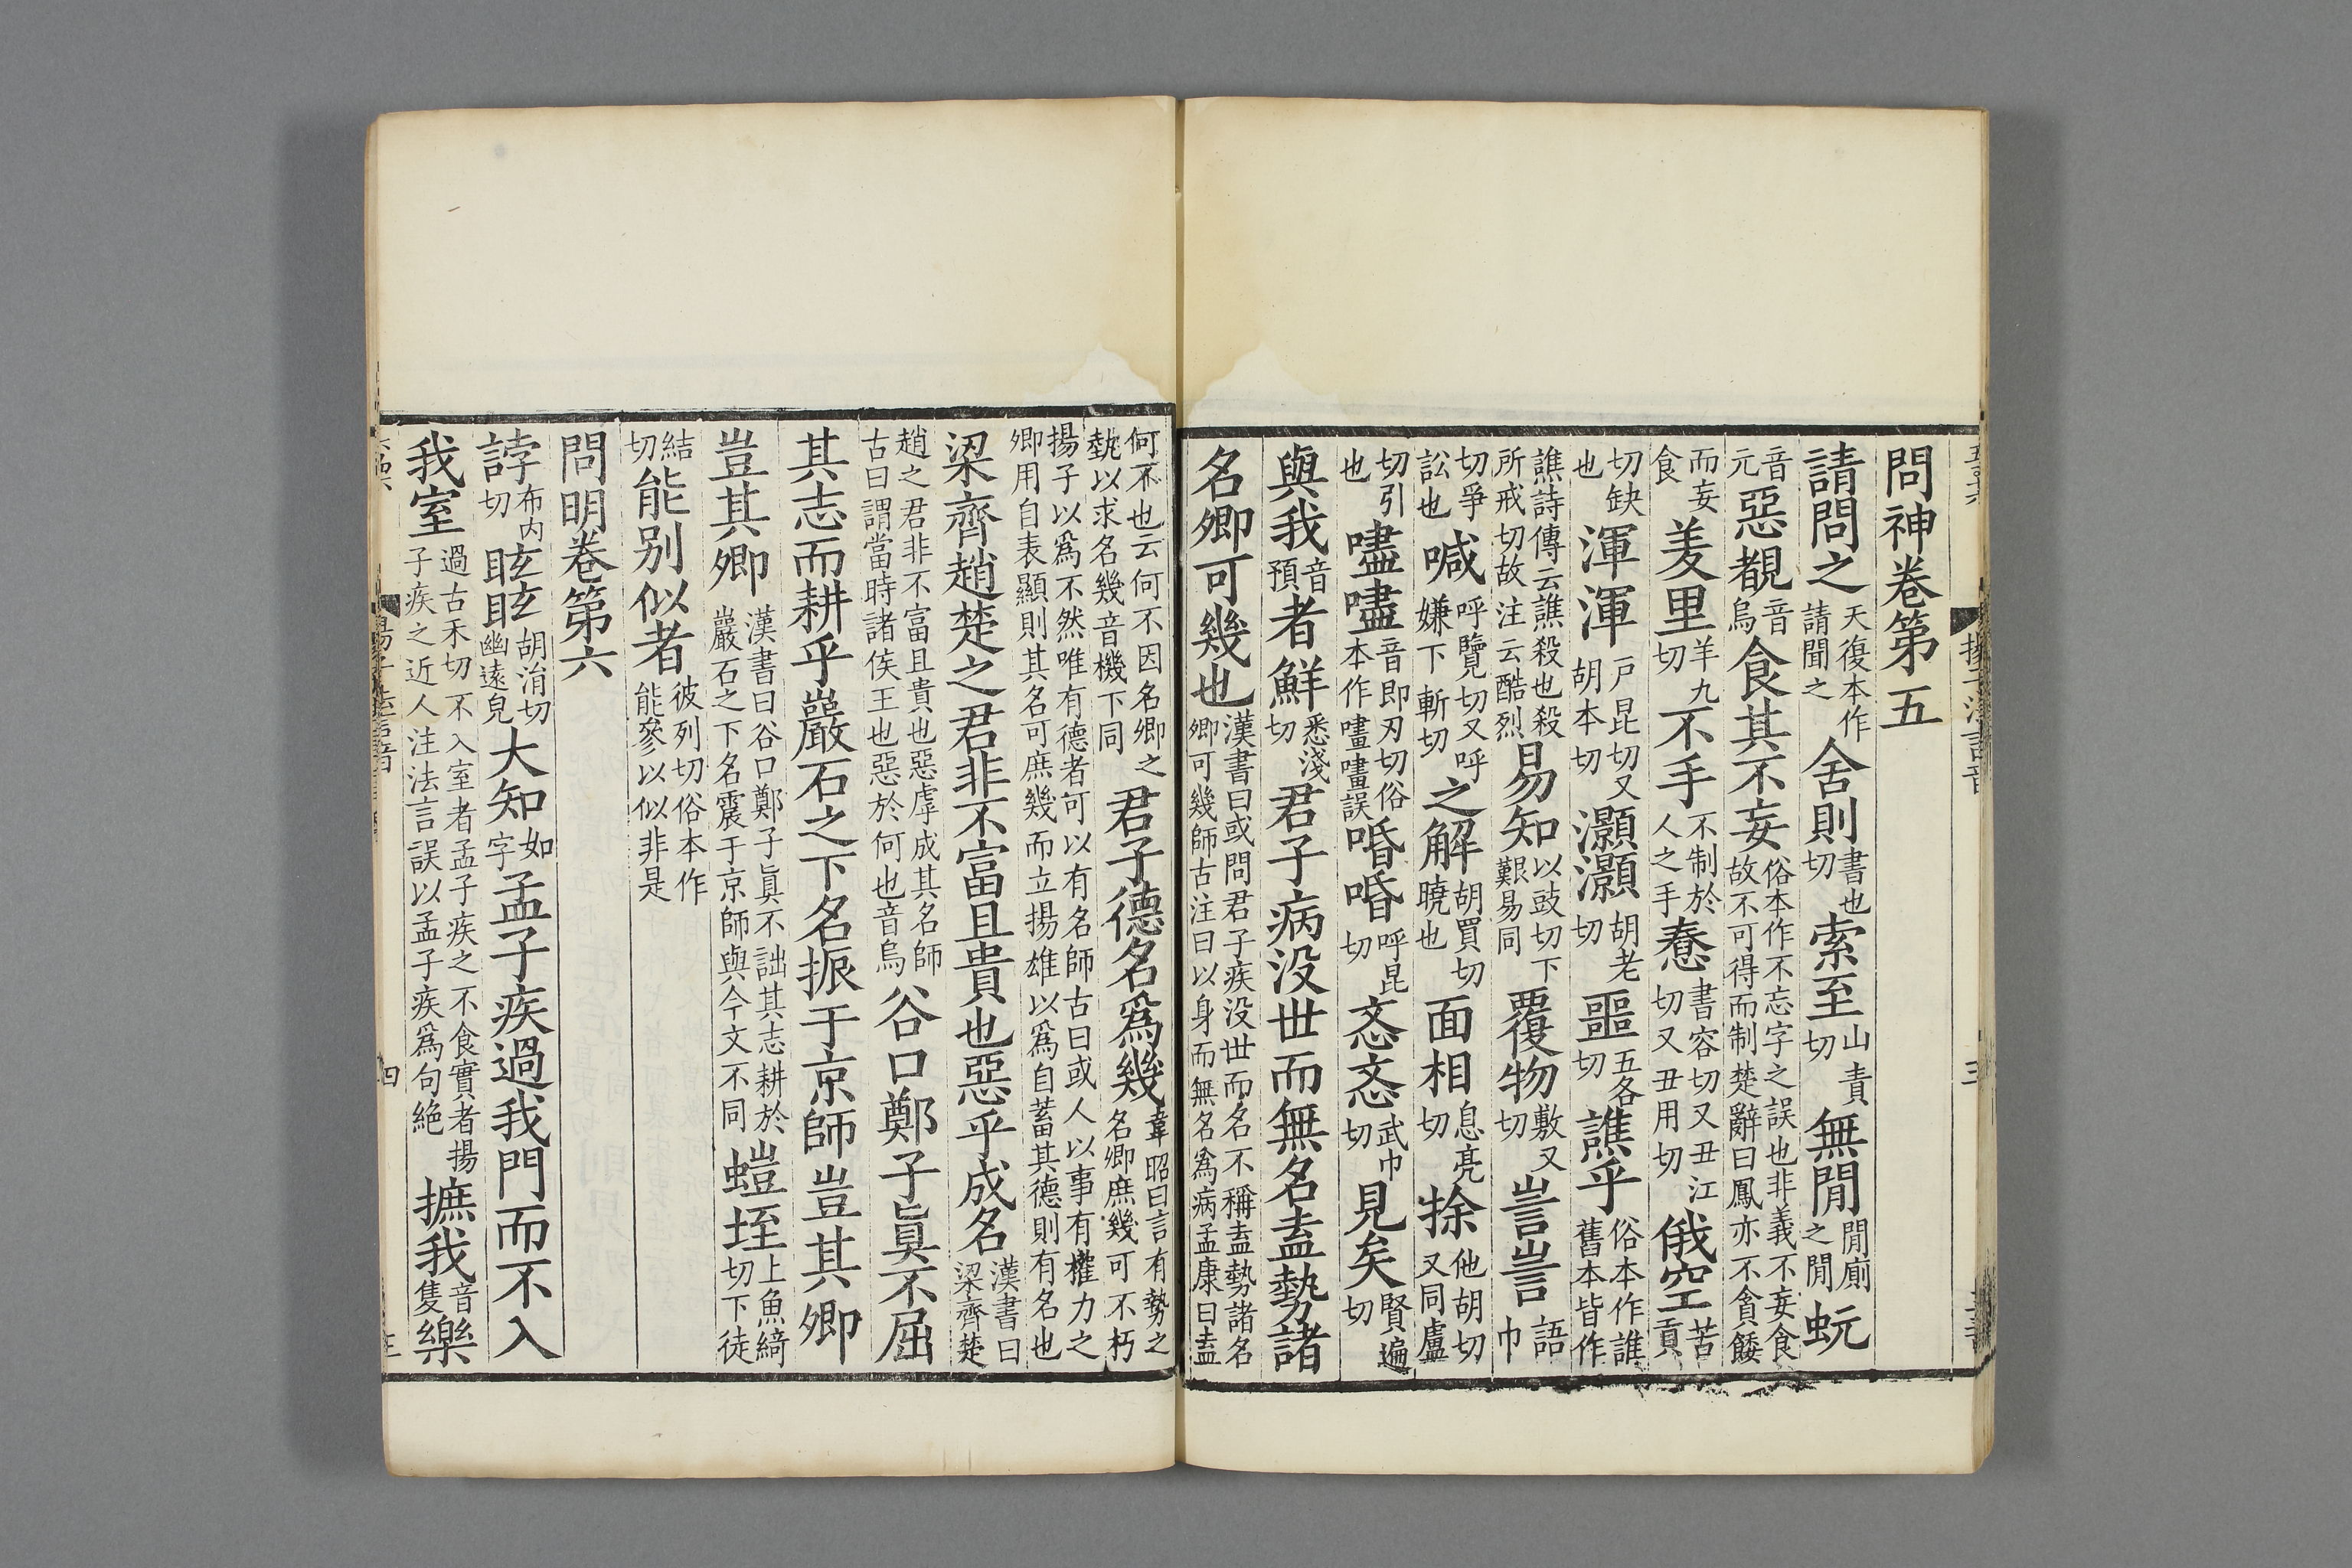 問神卷第五
請問之天復本作請聞之舍則書也切索至山責切無閒閒廁之閒蚖
音元惡覩音烏食其不妄俗本作不忘字之誤也非義不妄食故不可得而制楚辭曰鳳亦不貪餧
而妄食羑里羊九切不手不制於人之手惷書容切又丑江切又丑用切俄空苦貢
切缺也渾渾戸昆切又胡本切灝灝胡老切噩五各切譙乎俗本作誰舊本皆作
譙詩傳云譙殺也殺所戒切故注云酷烈易知以豉切下艱易同覆物敷又切訔訔語巾
切爭訟也㖤呼覽切又呼嫌下斬切之解胡買切曉也面相息亮切捈他胡切又同盧
切引也𠿝𠿝音即刃切俗本作嚍嚍誤㖧㖧呼昆切忞忞武巾切見矣賢遍切
與我音預者鮮悉淺切君子病没世而無名盍勢諸
名卿可幾也漢書曰或問君子疾没世而名不稱盍勢諸名卿可幾師古注曰以身而無名爲病孟康曰盍
何不也云何不因名卿之埶以求名幾音機下同君子德名爲幾韋昭曰言有勢之名卿庶幾可不朽
揚子以爲不然唯有德者可以有名師古曰或人以事有權力之卿用自表顯則其名可庶幾而立揚雄以爲自蓄其德則有名也
梁齊趙楚之君非不富且貴也惡乎成名漢書曰梁齊楚
趙之君非不富且貴也惡虖成其名師古曰謂當時諸侯王也惡於何也音烏谷口鄭子眞不屈
其志而耕乎巖石之下名振于京師豈其卿
豈其卿漢書曰谷口鄭子眞不詘其志耕於巖石之下名震于京師與今文不同螘垤上魚綺切下徒
結切能别似者彼列切俗本作能參以似非是
問明卷第六
誖布内切眩眩胡涓切幽遠皃大知如字孟子疾過我門而不入
我室過古禾切不入室者孟子疾之不食實者揚子疾之近人注法言誤以孟子疾爲句絶摭我音隻樂